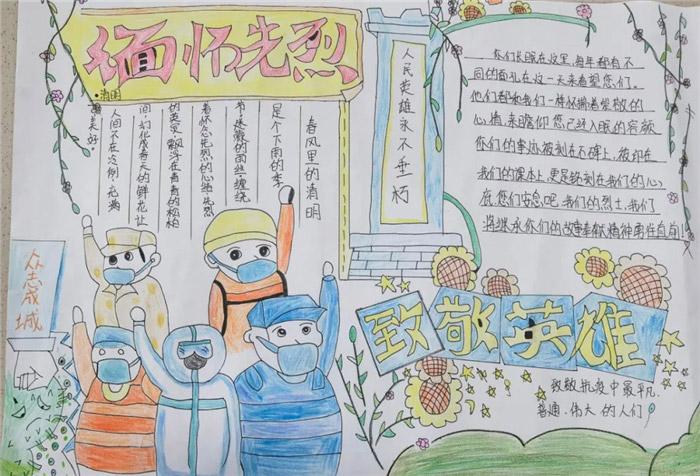 缅怀先烈
•清明
春风里的清明
是个下雨的季
节,迷濛的雨丝,缠绕
着怀念先烈的心绪,先烈
的英灵,飘浮在青青的松柏
间,幻化成春天的鲜花,让
人间不在冷例,充满
着美好
人民英雄永不垂朽
你们长眠在这里,每年都有不
同的面孔在这一天来看望您们。
他们都和我们一样怀揣着崇敬的
心情,来瞻仰您已经入眠的容颜
你们的事迹被刻在石碑上,被印在
我们的课本上,更是铭刻在我们的心
底,您们安息吧,我们的烈士,我们
将继承你们的
精神勇往直前!
众志成城
致敬英雄
致敬抗疫中最平凡、
普通、伟大的人们